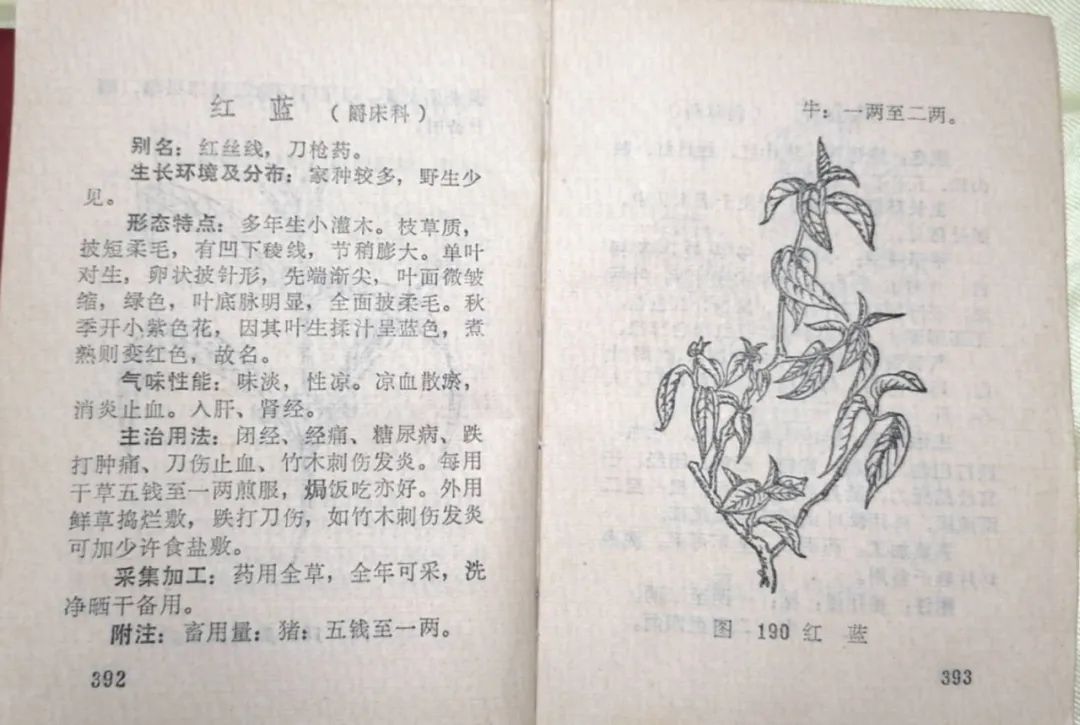 红 蓝 （爵床科）
别名：红丝线，刀枪药。
生长环境及分布：家种较多，野生少
见。
形态特点：多年生小灌木。枝草质，
披短柔毛，有凹下稜线，节稍膨大。单叶
对生，卵状披针形，先端渐尖，叶面微皱
缩，绿色，叶底脉明显，全面披柔毛。秋
季开小紫色花，因其叶生揉汁呈蓝色，煮
熟则变红色，故名。
气味性能：味淡，性凉。凉血散瘀，
消炎止血。入肝、肾经。
主治用法：闭经、经痛、糖尿病、跌
打肿痛、刀伤止血、竹木刺伤发炎。每用
干草五钱至一两煎服，焗饭吃亦好。外用
鲜草捣烂敷，跌打刀伤，如竹木刺伤发炎
可加少许食盐敷。
采集加工：药用全草，全年可采，洗
净晒干备用。
附注：畜用量：猪：五钱至一两。
392
牛：一两至二两。
图 190 红 蓝
393